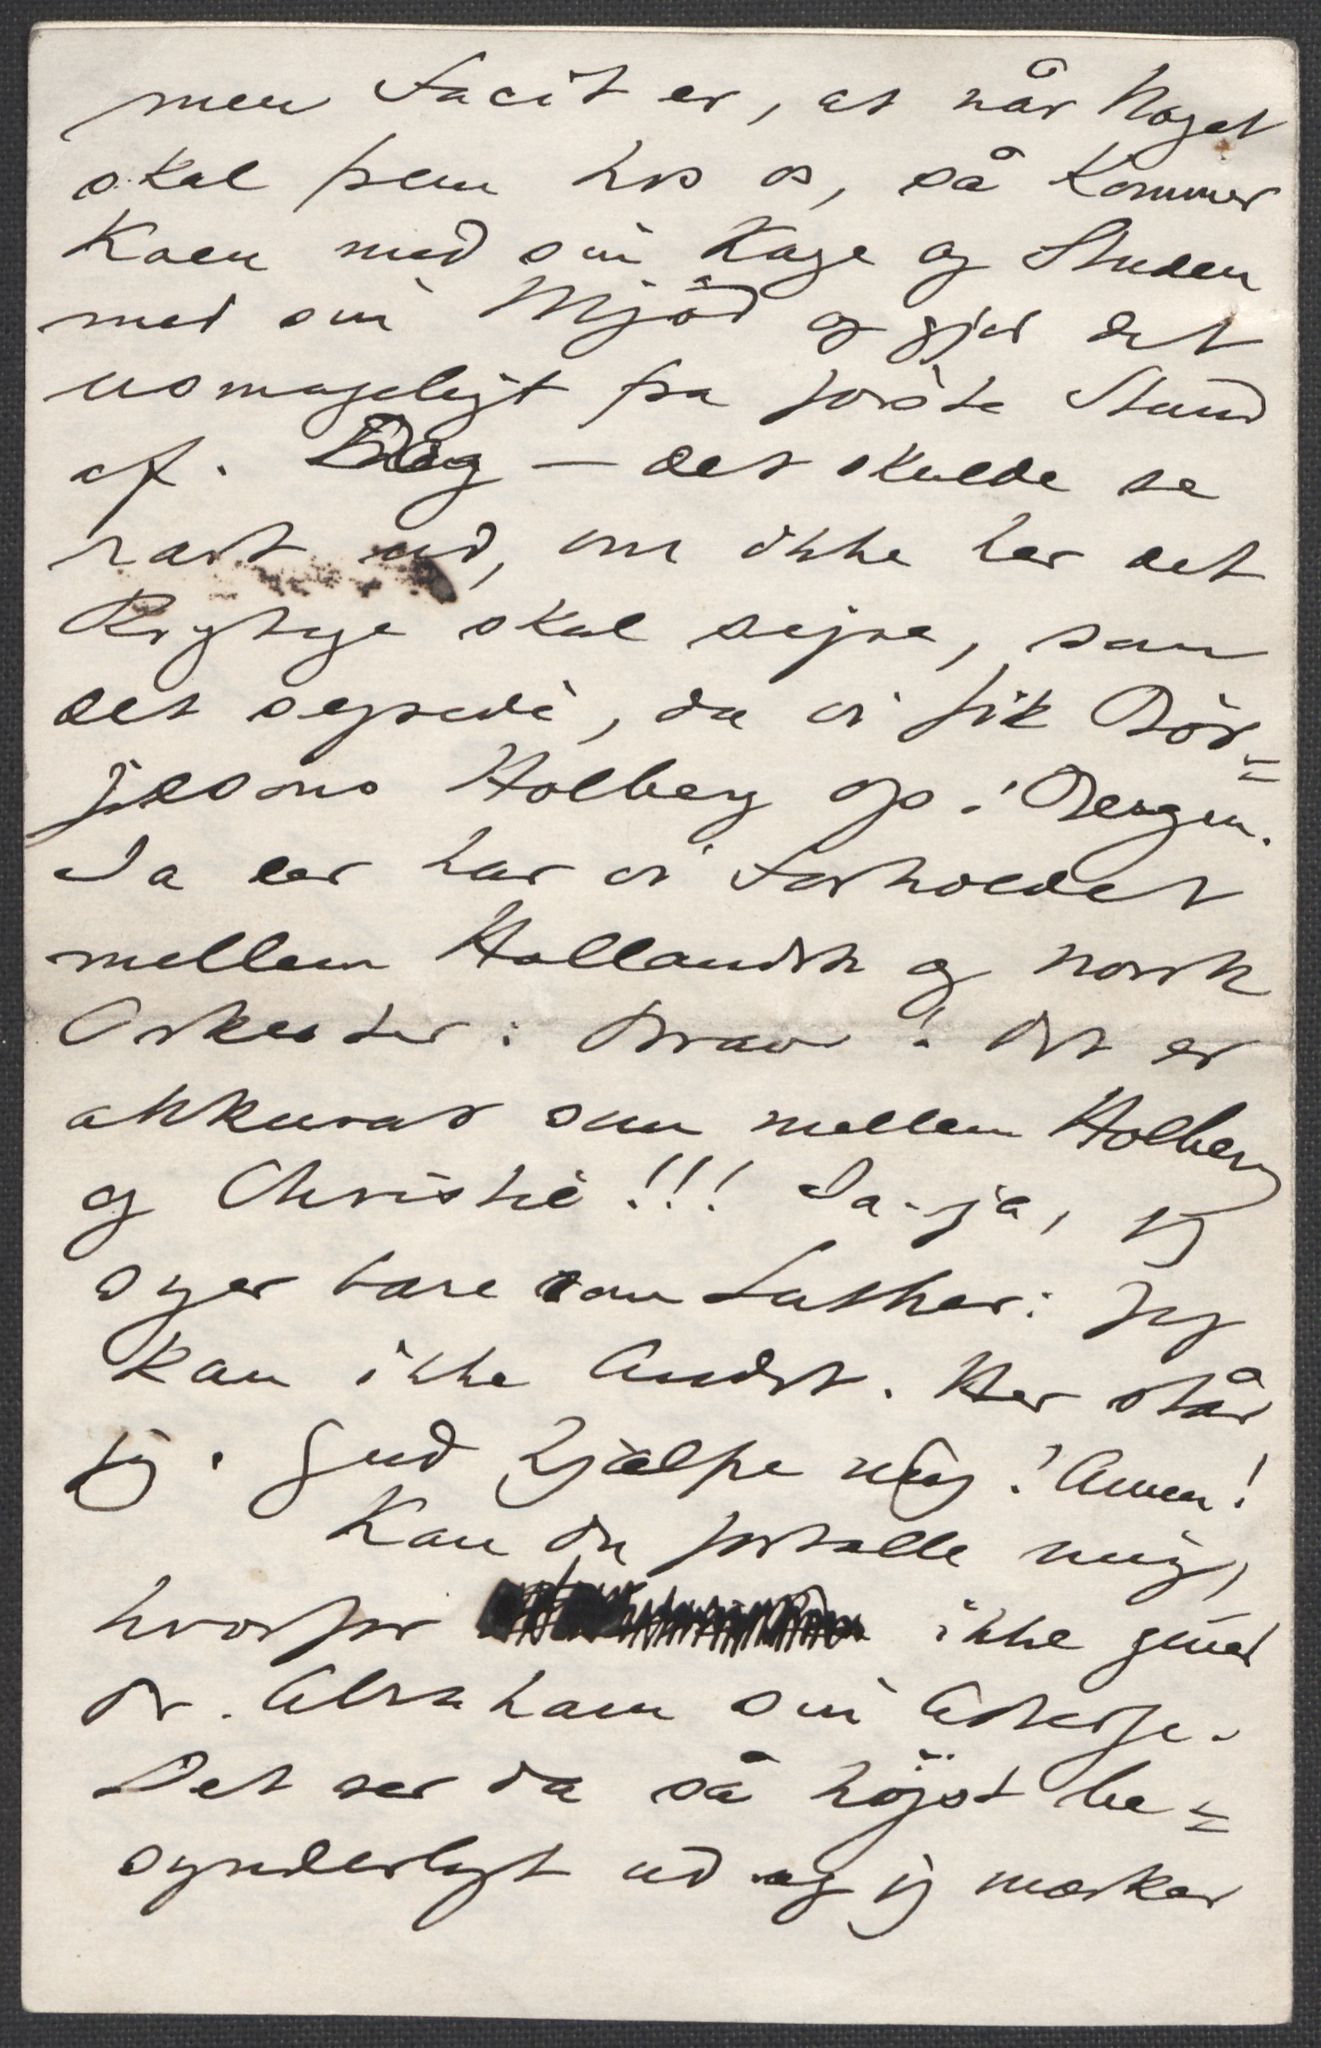 men Facit er, at når Noget
skal frem hos os, så kommer
Koen med sin Kage og Studen
med sin Mjød og gjør det
usmageligt fra første Stund
af. Dog — det skulde se
rart ud, om ikke her det
Rigtige skal sejre, som
det sejrede, da vi fik Bör-
jesons Holberg op i Bergen.
Ja der har vi Forholdet
mellem Hollandsk og norsk
Orkester: Bravo! Det er
akkurat som mellem Holberg
og Christie!!! Ja-ja, jeg
siger bare som Luther: Jeg
kan ikke Andet. Her står
jeg. Gud hjælpe mig! Amen!
Kan du fortælle mig,
hvorfor ikke giver
Dr. Abraham sin Adresse.
Det ser da så højst be-
synderligt ud og jeg mærker